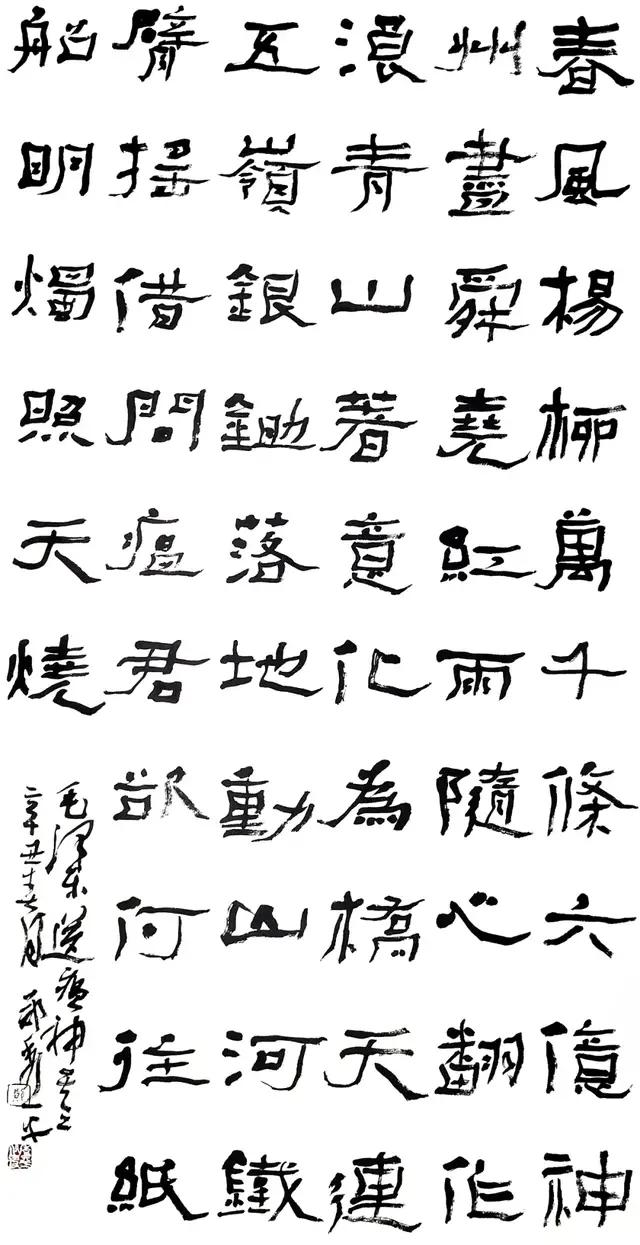 春風楊柳萬千條六億神
州盡舜堯紅雨隨心翻作
浪青山著意化為橋天連
五嶺銀鋤落地動山河鐵
臂搖借問瘟君欲何往紙
船明燭照天燒
毛澤東送瘟神其二
辛丑春月